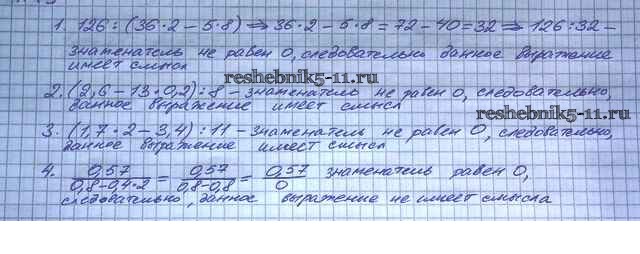 1. 126 : (36·2 − 5·8) ⇒ 36·2 − 5·8 = 72 − 40 = 32 ⇒ 126:32 −
знаменатель не равен 0, следовательно данное выражение
имеет смысл
reshebnik5-11.ru
2. (2,6 − 13·0,2) : 8 − знаменатель не равен 0, следовательно,
данное выражение имеет смысл
reshebnik5-11.ru
3. (1,7·2 − 3,4) : 11 − знаменатель не равен 0, следовательно,
данное выражение имеет смысл
4. 0,57/(0,8−0,4·2) = 0,57/(0,8−0,8) = 0,57/0 знаменатель равен 0,
следовательно, данное выражение не имеет смысла